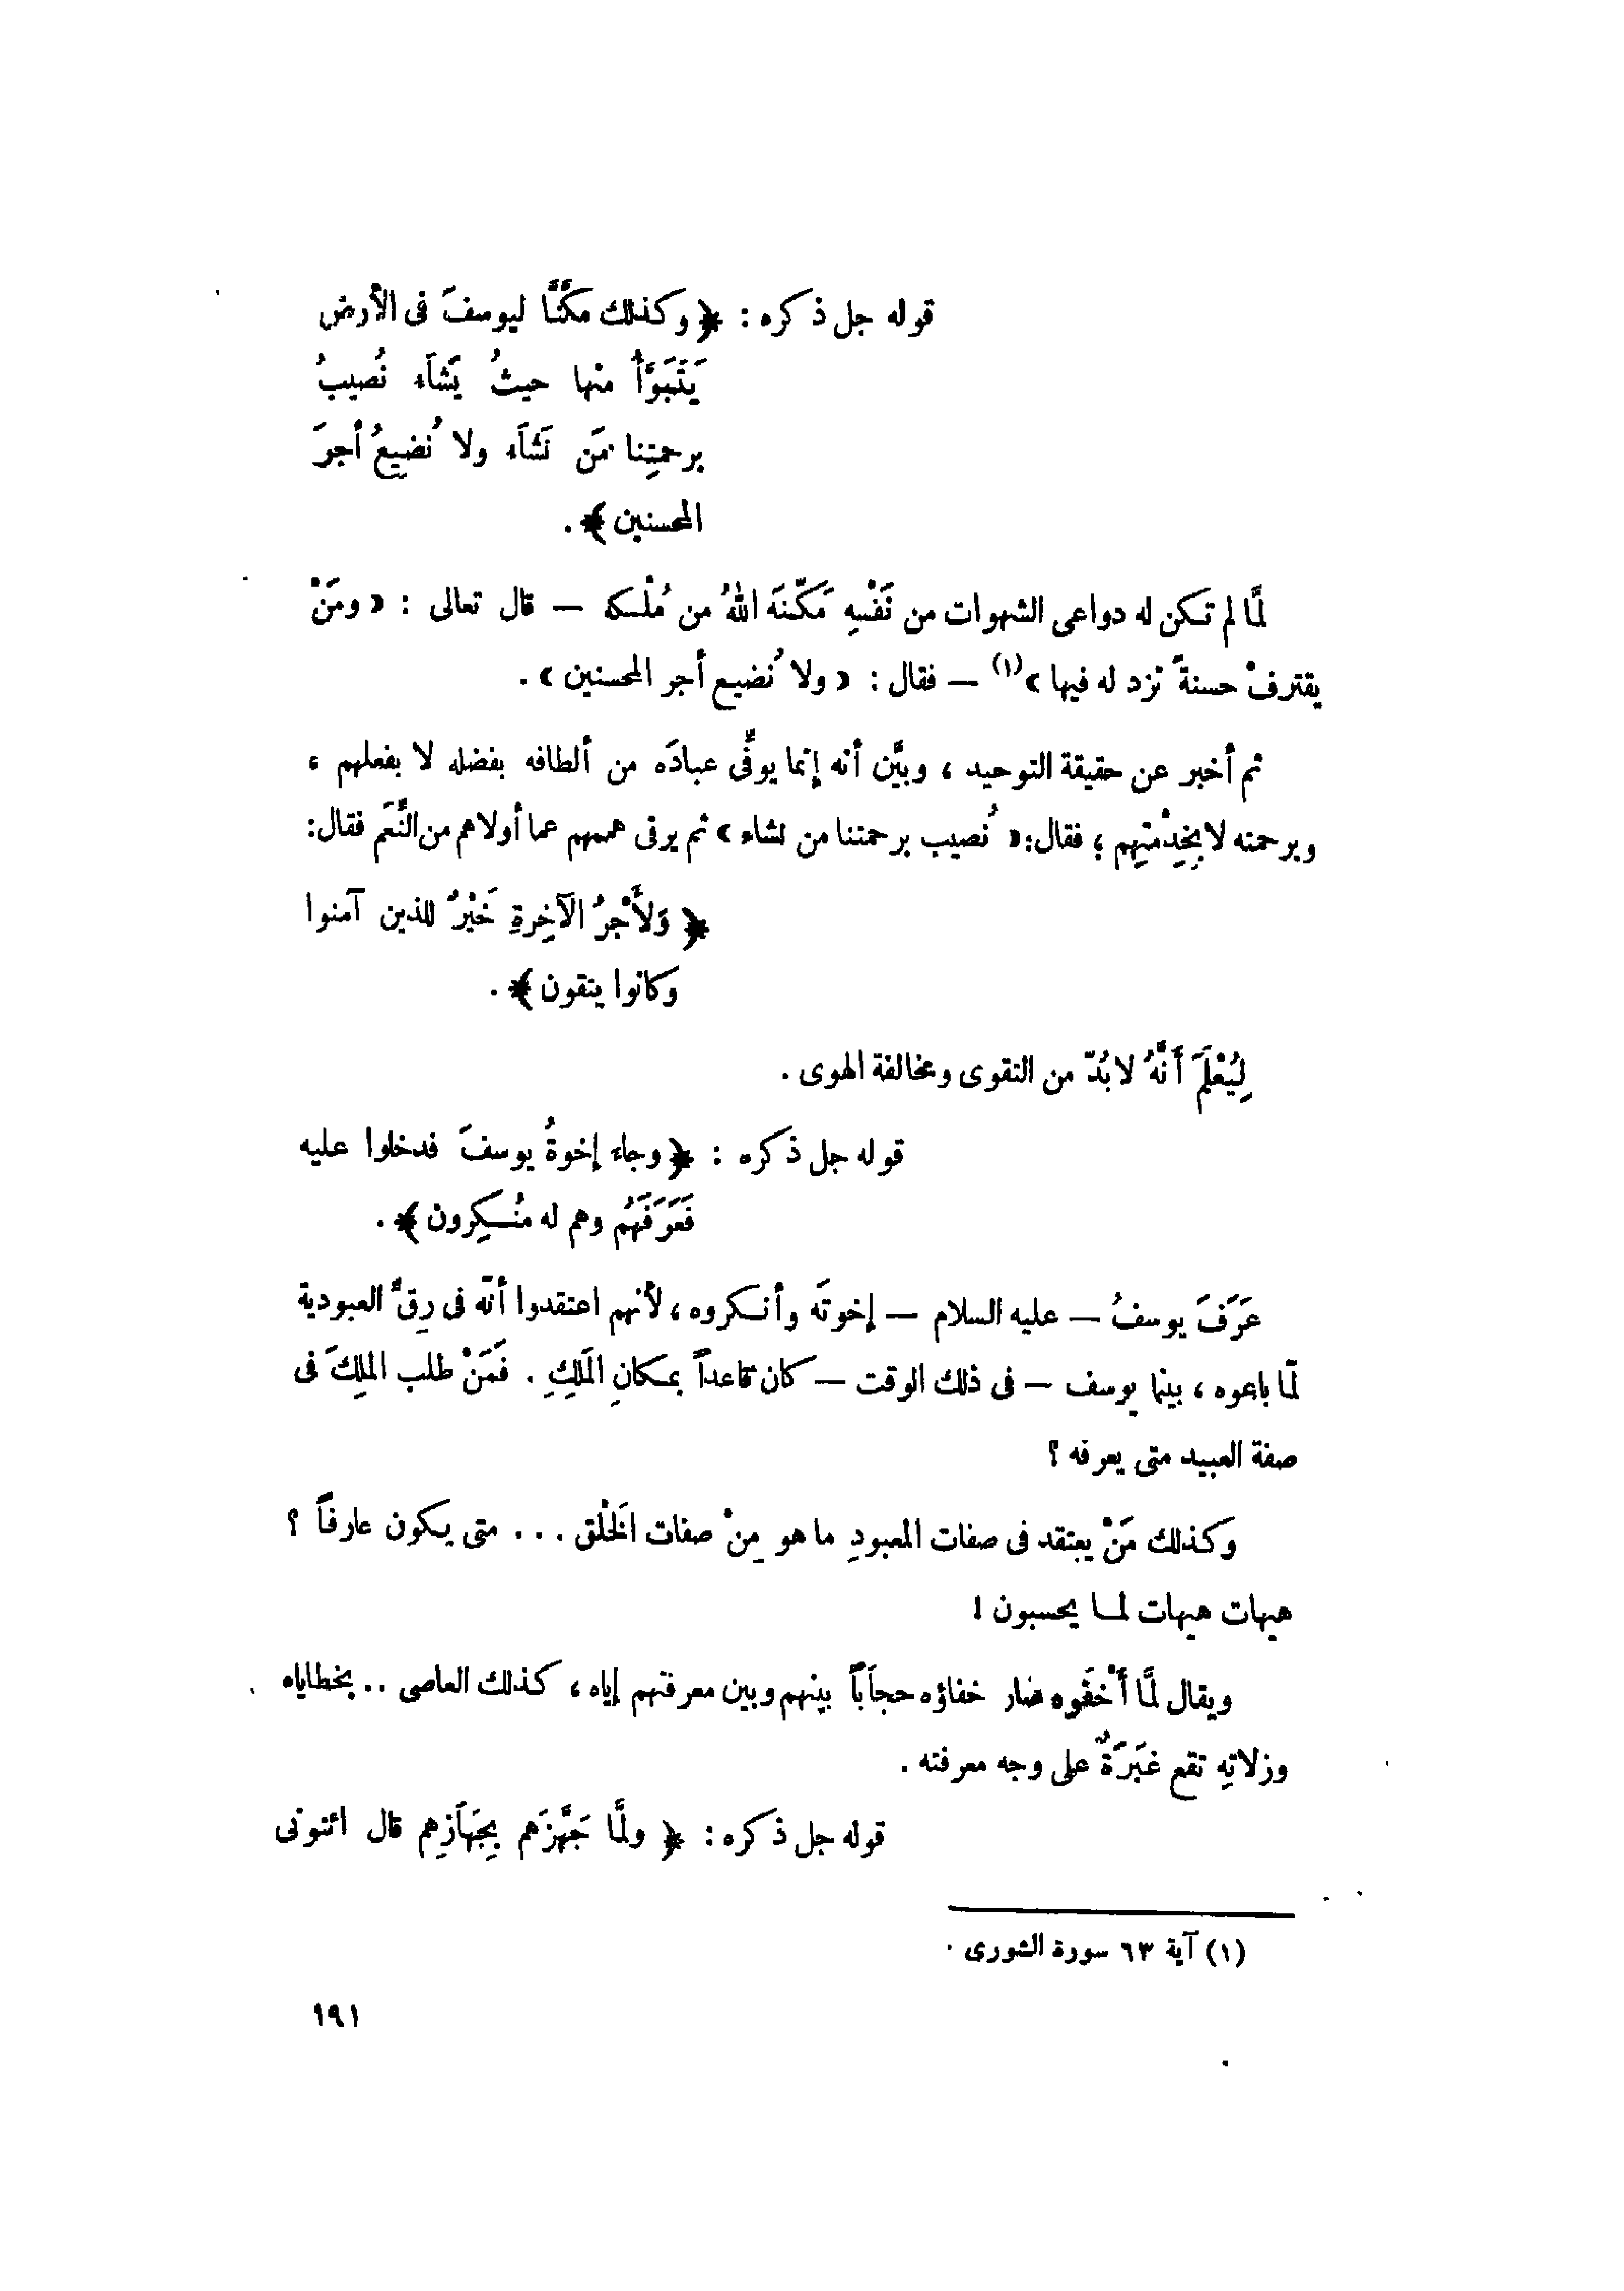 قوله جل ذكره : ﴿ وكذلك مكَّنَّا ليوسفَ فى الأرض
يَتَبَوَّأُ منها حيثُ يَشَآء نُصيبُ
برحمتِنا مَن نَشَآء ولا نُضيعُ أجرَ
المحسنين ﴾ .
لمَّا لم تكن له دواعى الشهوات من نَفْسِه مَكَّنَه اللهُ من مُلْكه — قال تعالى : « ومَنْ
يقترفْ حسنةً نزد له فيها »(١) — فقال : « ولا نُضيع أجر المحسنين » .
ثم أخبر عن حقيقة التوحيد ، وبيَّن أنه إنما يوفِّى عبادَه من ألطافه بفضله لا بفعلهم ،
وبرحمته لا بِخِدْمتِهم ؛ فقال : « نُصيب برحمتنا من نشاء » ثم يرقى هممهم عما أولاهم من النِّعَم فقال :
﴿ وَلأَجْرُ الآخِرةِ خَيْرٌ للذين آمنوا
وكانوا يتقون ﴾ .
لِيُعْلَمَ أَنَّهُ لابُدّ من التقوى ومخالفة الهوى .
قوله جل ذكره : ﴿ وجاء إخوةُ يوسفَ فدخلوا عليه
فَعَرَفَهُم وهم له مُنكِرون ﴾ .
عَرَفَ يوسفُ — عليه السلام — إخوتَه وأنكروه ، لأنهم اعتقدوا أنَّه فى رِقِّ العبودية
لمَّا باعوه ، بينما يوسف — فى ذلك الوقت — كان قاعداً بمكانِ المَلِكِ . فَمَنْ طلب الملِكَ فى
صفة العبيد متى يعرفه ؟
وكذلك مَنْ يعتقد فى صفات المعبودِ ما هو مِنْ صفات الخَلْق ... متى يكون عارفاً ؟
هيهات هيهات لما يحسبون !
ويقال لمَّا أَخْفَوه صار خفاؤه حجاباً بينهم وبين معرفتهم إياه ، كذلك العاصى .. بخطاياه
وزلاتِه تقع غَبَرَةٌ على وجه معرفته .
قوله جل ذكره : ﴿ ولمَّا جَهَّزَهم بِجَهَازِهم قال ائتونى
(١) آية ٦٣ سورة الشورى .
١٩١